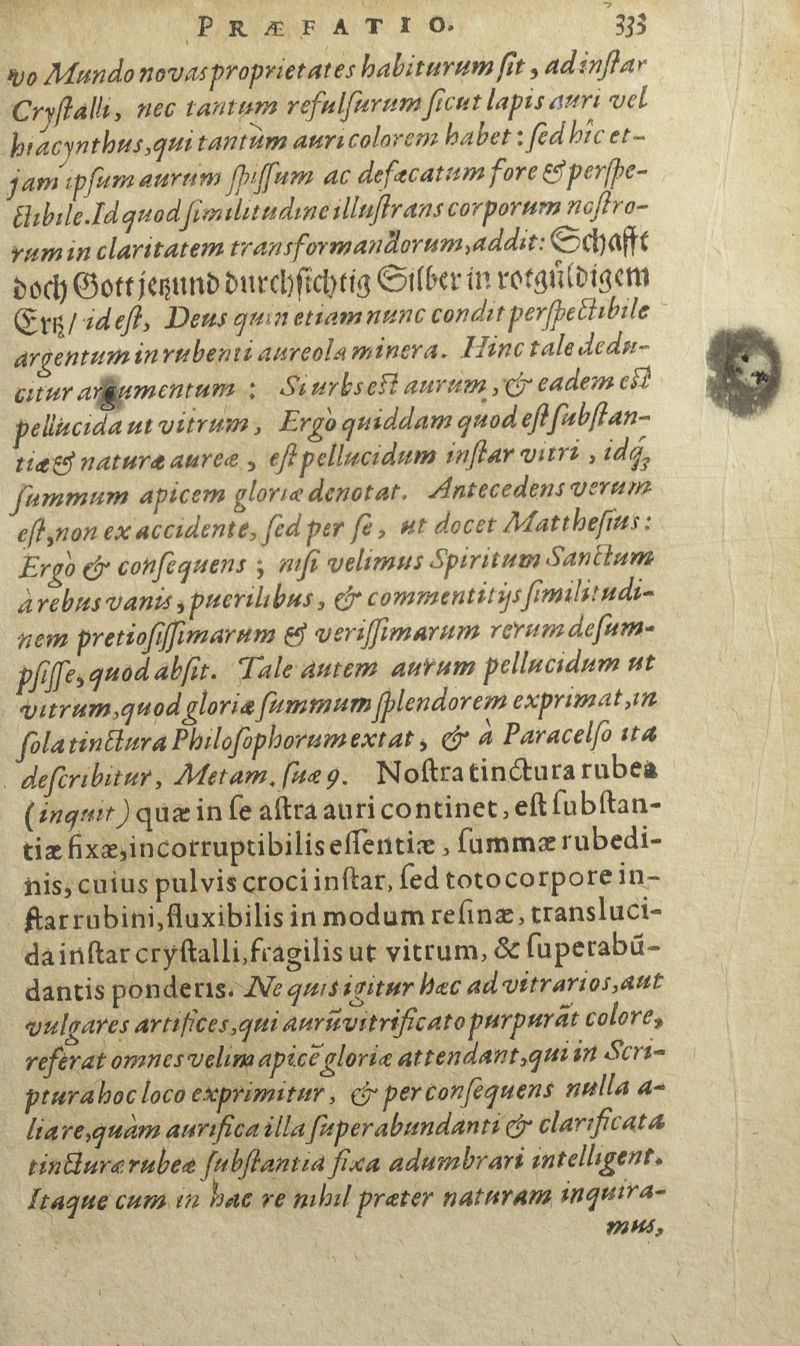 PRÆFATIO. 333
vo Mundo novas proprietates habiturum ſit, ad inſtar
Cryſtalli, nec tantum refulſurum ſicut lapis auri vel
hiacynthus, qui tantùm auri colorem habet: ſed hîc et-
jam ipſum aurum ſpiſſum ac defæcatum fore & perſpe-
ctibile. Id quod ſimilitudine illuſtrans corporum noſtro-
rum in claritatem transformandorum, addit: Schafft
doch Gott jetzund durchſichtig Silber in rotgüldigem
Ertz/ id eſt, Deus quin etiam nunc condit perſpectibile
argentum in rubenti aureola minera. Hinc tale dedu-
citur argumentum: Si urbs eſt aurum, & eadem eſt
pellucida ut vitrum, Ergò quiddam quod eſt ſubſtan-
tiæ & naturæ aureæ, eſt pellucidum inſtar vitri, idq́;
ſummum apicem gloriæ denotat. Antecedens verum
eſt, non ex accidente, ſed per ſe, ut docet Mattheſius:
Ergò & conſequens; niſi velimus Spiritum Sanctum
à rebus vanis, puerilibus, & commentitijs ſimilitudi-
nem pretioſiſſimarum & veriſſimarum rerum deſum-
pſiſſe, quod abſit. Tale autem aurum pellucidum ut
vitrum, quod gloriæ ſummum ſplendorem exprimat, in
ſola tinctura Philoſophorum extat, & à Paracelſo ita
deſcribitur, Metam. ſuæ 9. Noſtra tinctura rubea
(inquit) quæ in ſe aſtra auri continet, eſt ſubſtan-
tiæ fixæ, incorruptibilis eſſentiæ, ſummæ rubedi-
nis, cuius pulvis croci inſtar, ſed toto corpore in-
ſtar rubini, fluxibilis in modum reſinæ, transluci-
da inſtar cryſtalli, fragilis ut vitrum, & ſuperabũ-
dantis ponderis. Ne quis igitur hæc ad vitrarios, aut
vulgares artifices, qui aurũ vitrificato purpurãt colore,
referat omnes velim apicẽ gloriæ attendant, qui in Scri-
ptura hoc loco exprimitur, & per conſequens nulla a-
lia re, quàm aurifica illa ſuperabundanti & clarificata
tincturæ rubeæ ſubſtantia fixa adumbrari intelligent.
Itaque cum in hac re nihil præter naturam inquira-
mus,